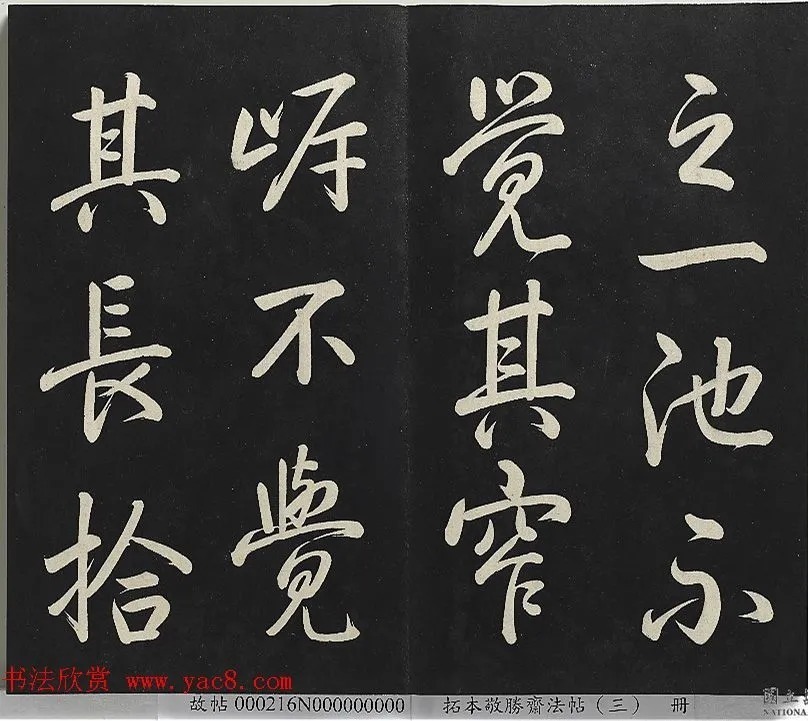 之一池不
覺其窄
岸不覺
其長拾
书法欣赏 www.yac8.com
故帖 000216N000000000
拓本敬勝齋法帖（三） 冊
NATIONA